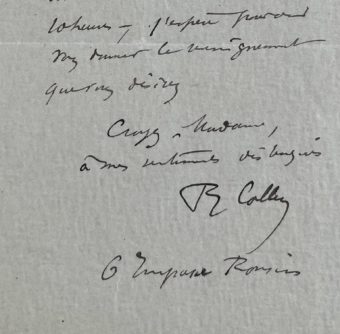 10 heures – j'espère pouvoir
vous donner le renseignement
que vous désirez
Croyez, Madame,
à mes sentiments distingués
Colley
6 Impasse Ronsin